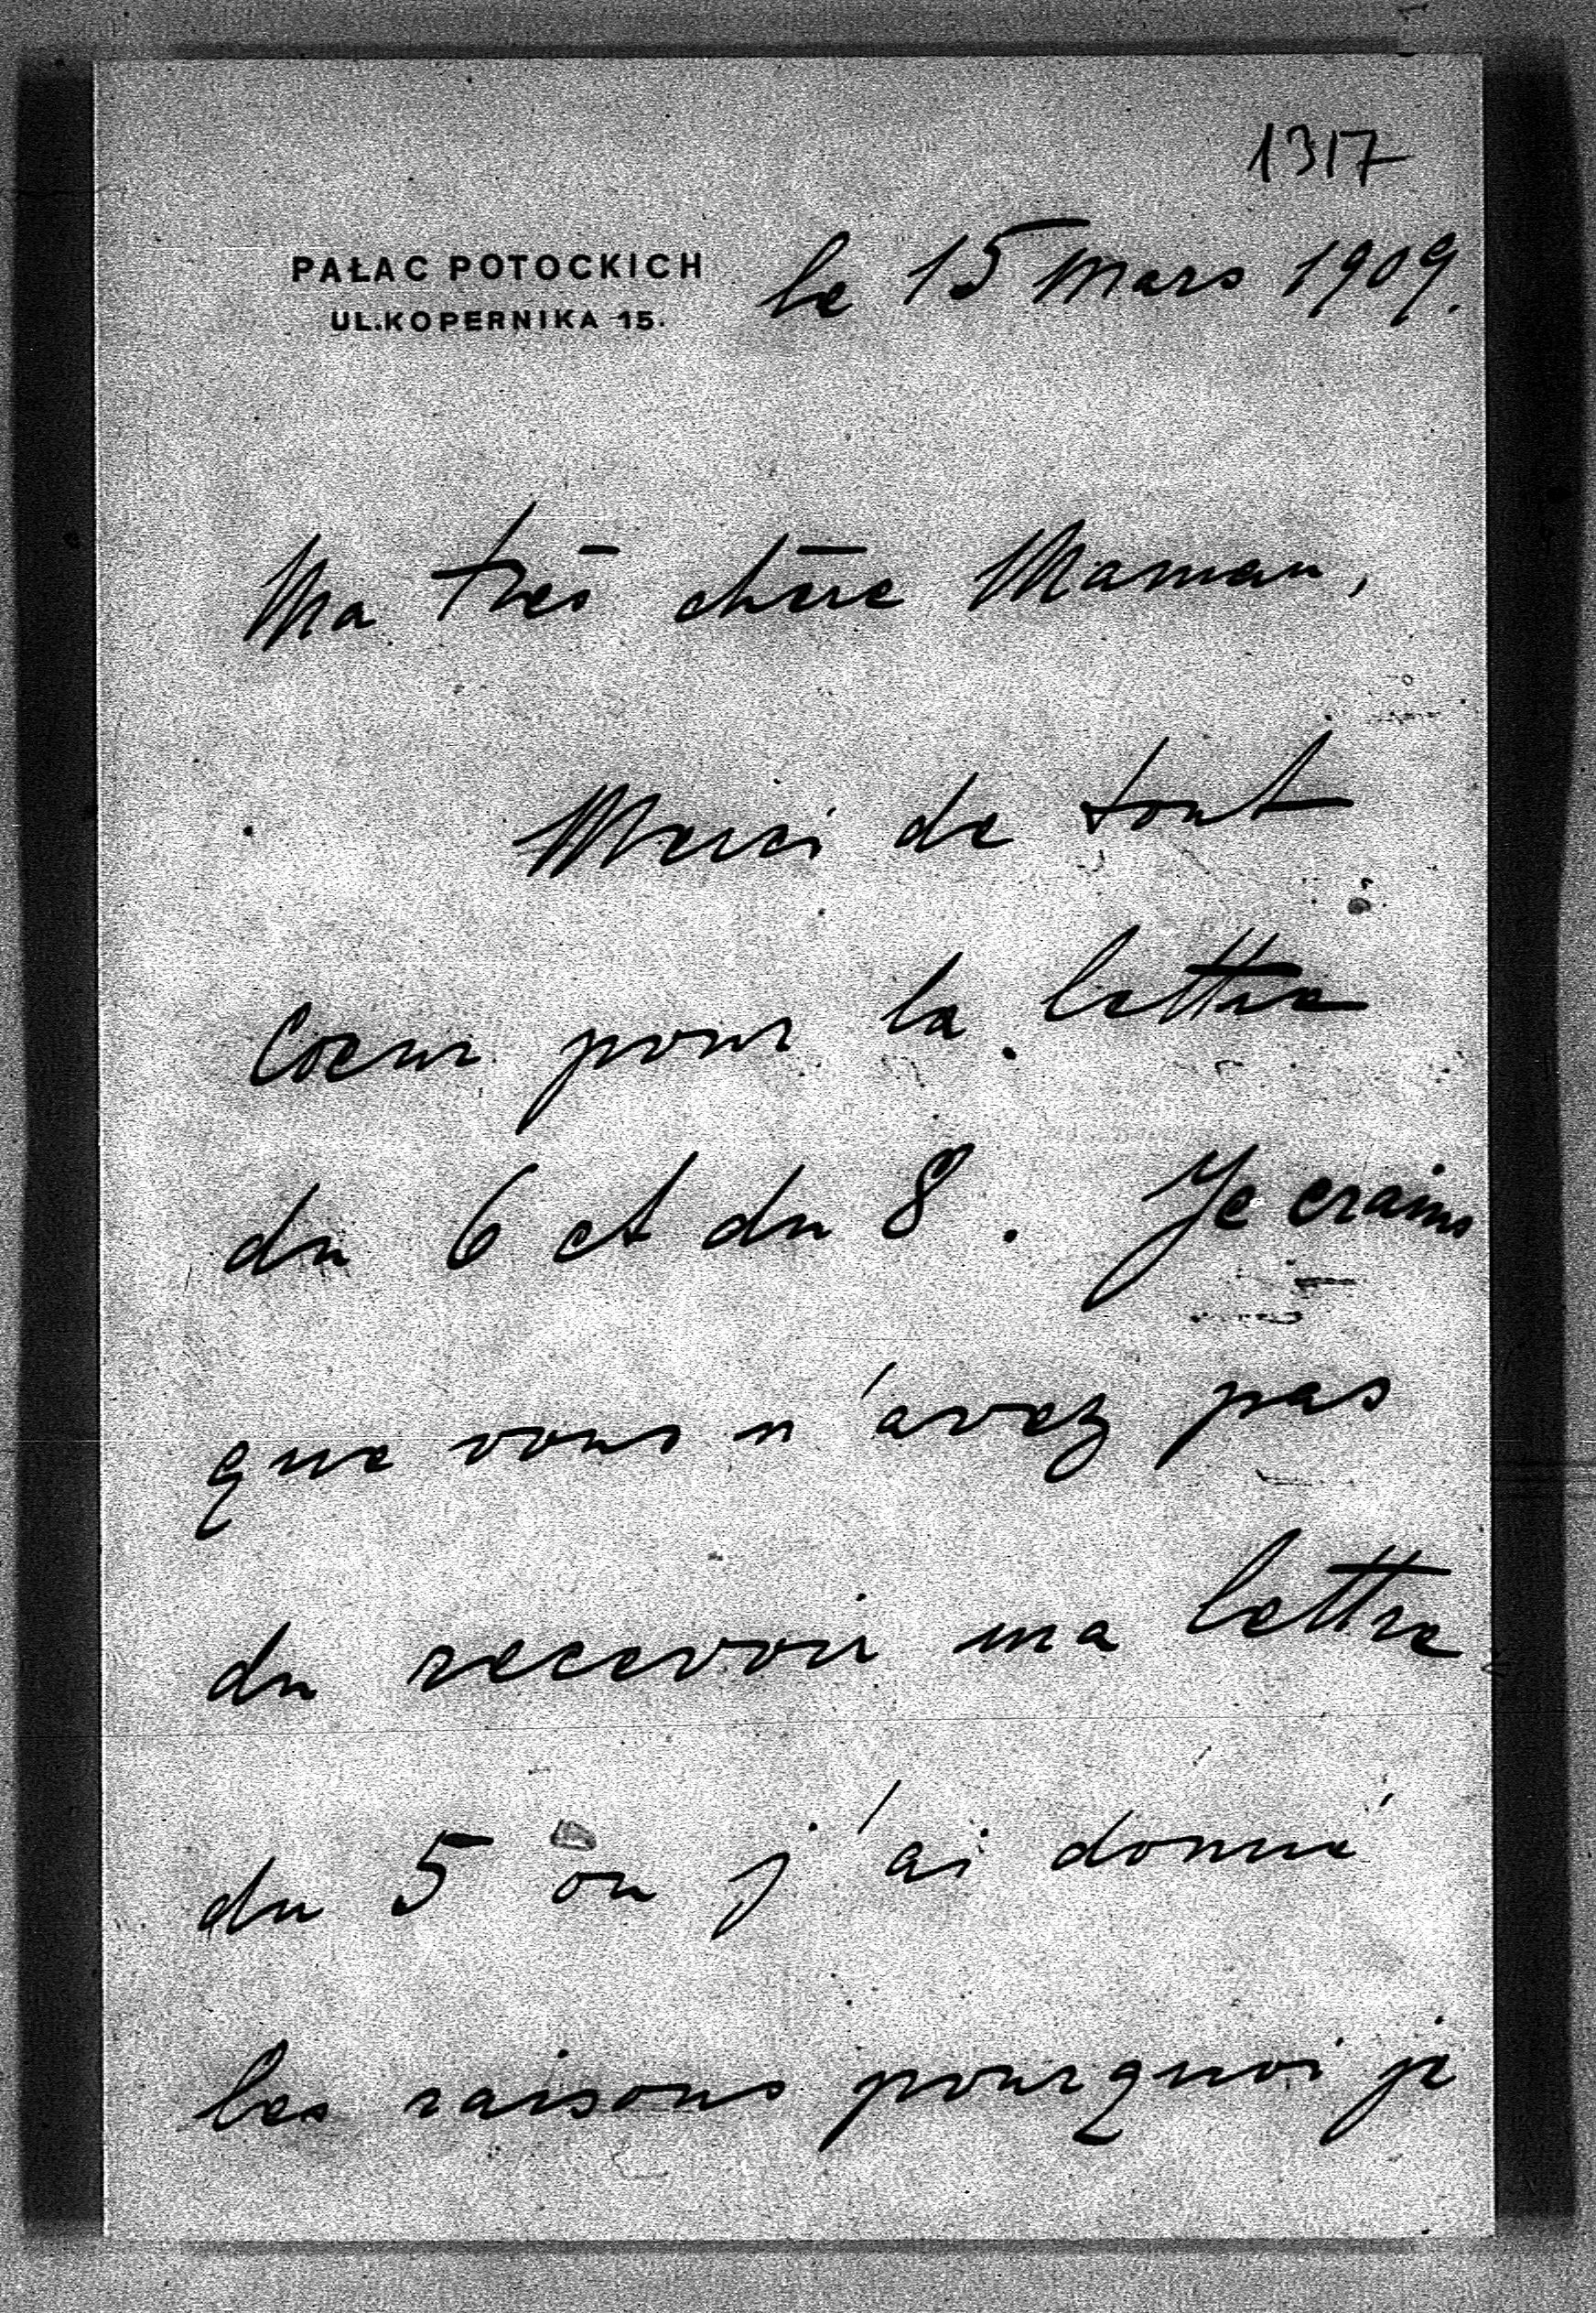 1317
PAŁAC POTOCKICH
UL.KOPERNIKA 15.
le 15 Mars 1909.
Ma très chère Maman,
Merci de tout
Coeur pour la lettre
du 6 et du 8. Je crains
que vous n'avez pas
du recevoir ma lettre
du 5 ou j'ai donné
les raisons pourquoi je